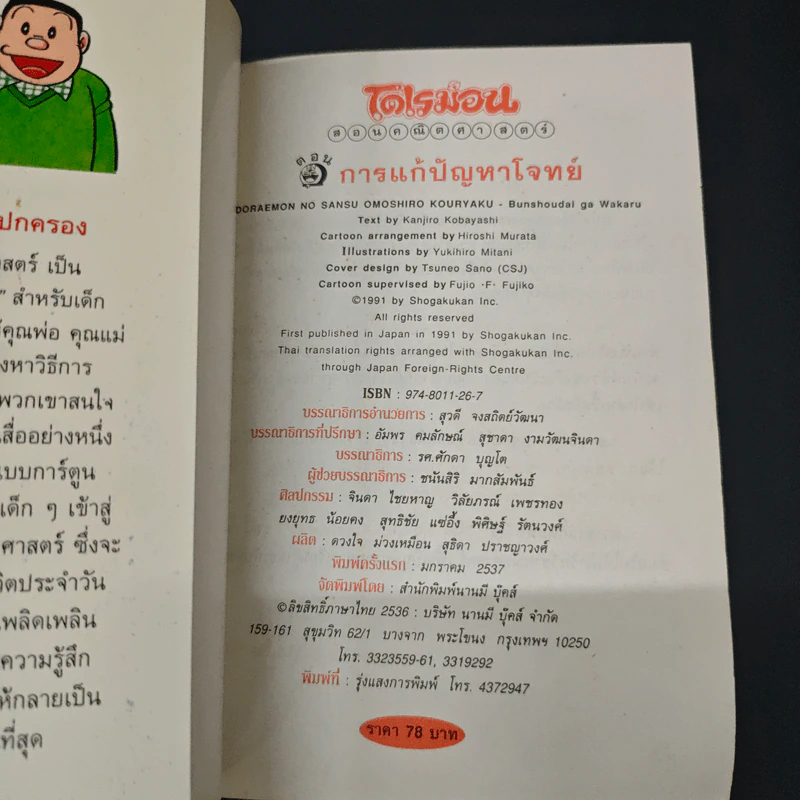 ปกครอง
สตร์ เป็น
" สำหรับเด็ก
คุณพ่อ คุณแม่
งหาวิธีการ
พวกเขาสนใจ
สื่ออย่างหนึ่ง
แบบการ์ตูน
เด็ก ๆ เข้าสู่
ศาสตร์ ซึ่งจะ
วิตประจำวัน
เพลิดเพลิน
ความรู้สึก
ห้กลายเป็น
ที่สุด
โดเรม่อน
สอนคณิตศาสตร์
ตอน การแก้ปัญหาโจทย์
DORAEMON NO SANSU OMOSHIRO KOURYAKU - Bunshoudai ga Wakaru
Text by Kanjiro Kobayashi
Cartoon arrangement by Hiroshi Murata
Illustrations by Yukihiro Mitani
Cover design by Tsuneo Sano (CSJ)
Cartoon supervised by Fujio ·F· Fujiko
©1991 by Shogakukan Inc.
All rights reserved
First published in Japan in 1991 by Shogakukan Inc.
Thai translation rights arranged with Shogakukan Inc.
through Japan Foreign-Rights Centre
ISBN : 974-8011-26-7
บรรณาธิการอำนวยการ : สุวดี จงสถิตย์วัฒนา
บรรณาธิการที่ปรึกษา : อัมพร คมลักษณ์ สุชาดา งามวัฒนจินดา
บรรณาธิการ : รศ.ศักดา บุญโต
ผู้ช่วยบรรณาธิการ : ชนันสิริ มากสัมพันธ์
ศิลปกรรม : จินดา ไชยหาญ วิลัยภรณ์ เพชรทอง
ยงยุทธ น้อยคง สุทธิชัย แซ่อึ้ง พิศิษฐ์ รัตนวงศ์
ผลิต : ดวงใจ ม่วงเหมือน สุธิดา ปราชญาวงศ์
พิมพ์ครั้งแรก : มกราคม 2537
จัดพิมพ์โดย : สำนักพิมพ์นานมี บุ๊คส์
©ลิขสิทธิ์ภาษาไทย 2536 : บริษัท นานมี บุ๊คส์ จำกัด
159-161 สุขุมวิท 62/1 บางจาก พระโขนง กรุงเทพฯ 10250
โทร. 3323559-61, 3319292
พิมพ์ที่ : รุ่งแสงการพิมพ์ โทร. 4372947
ราคา 78 บาท